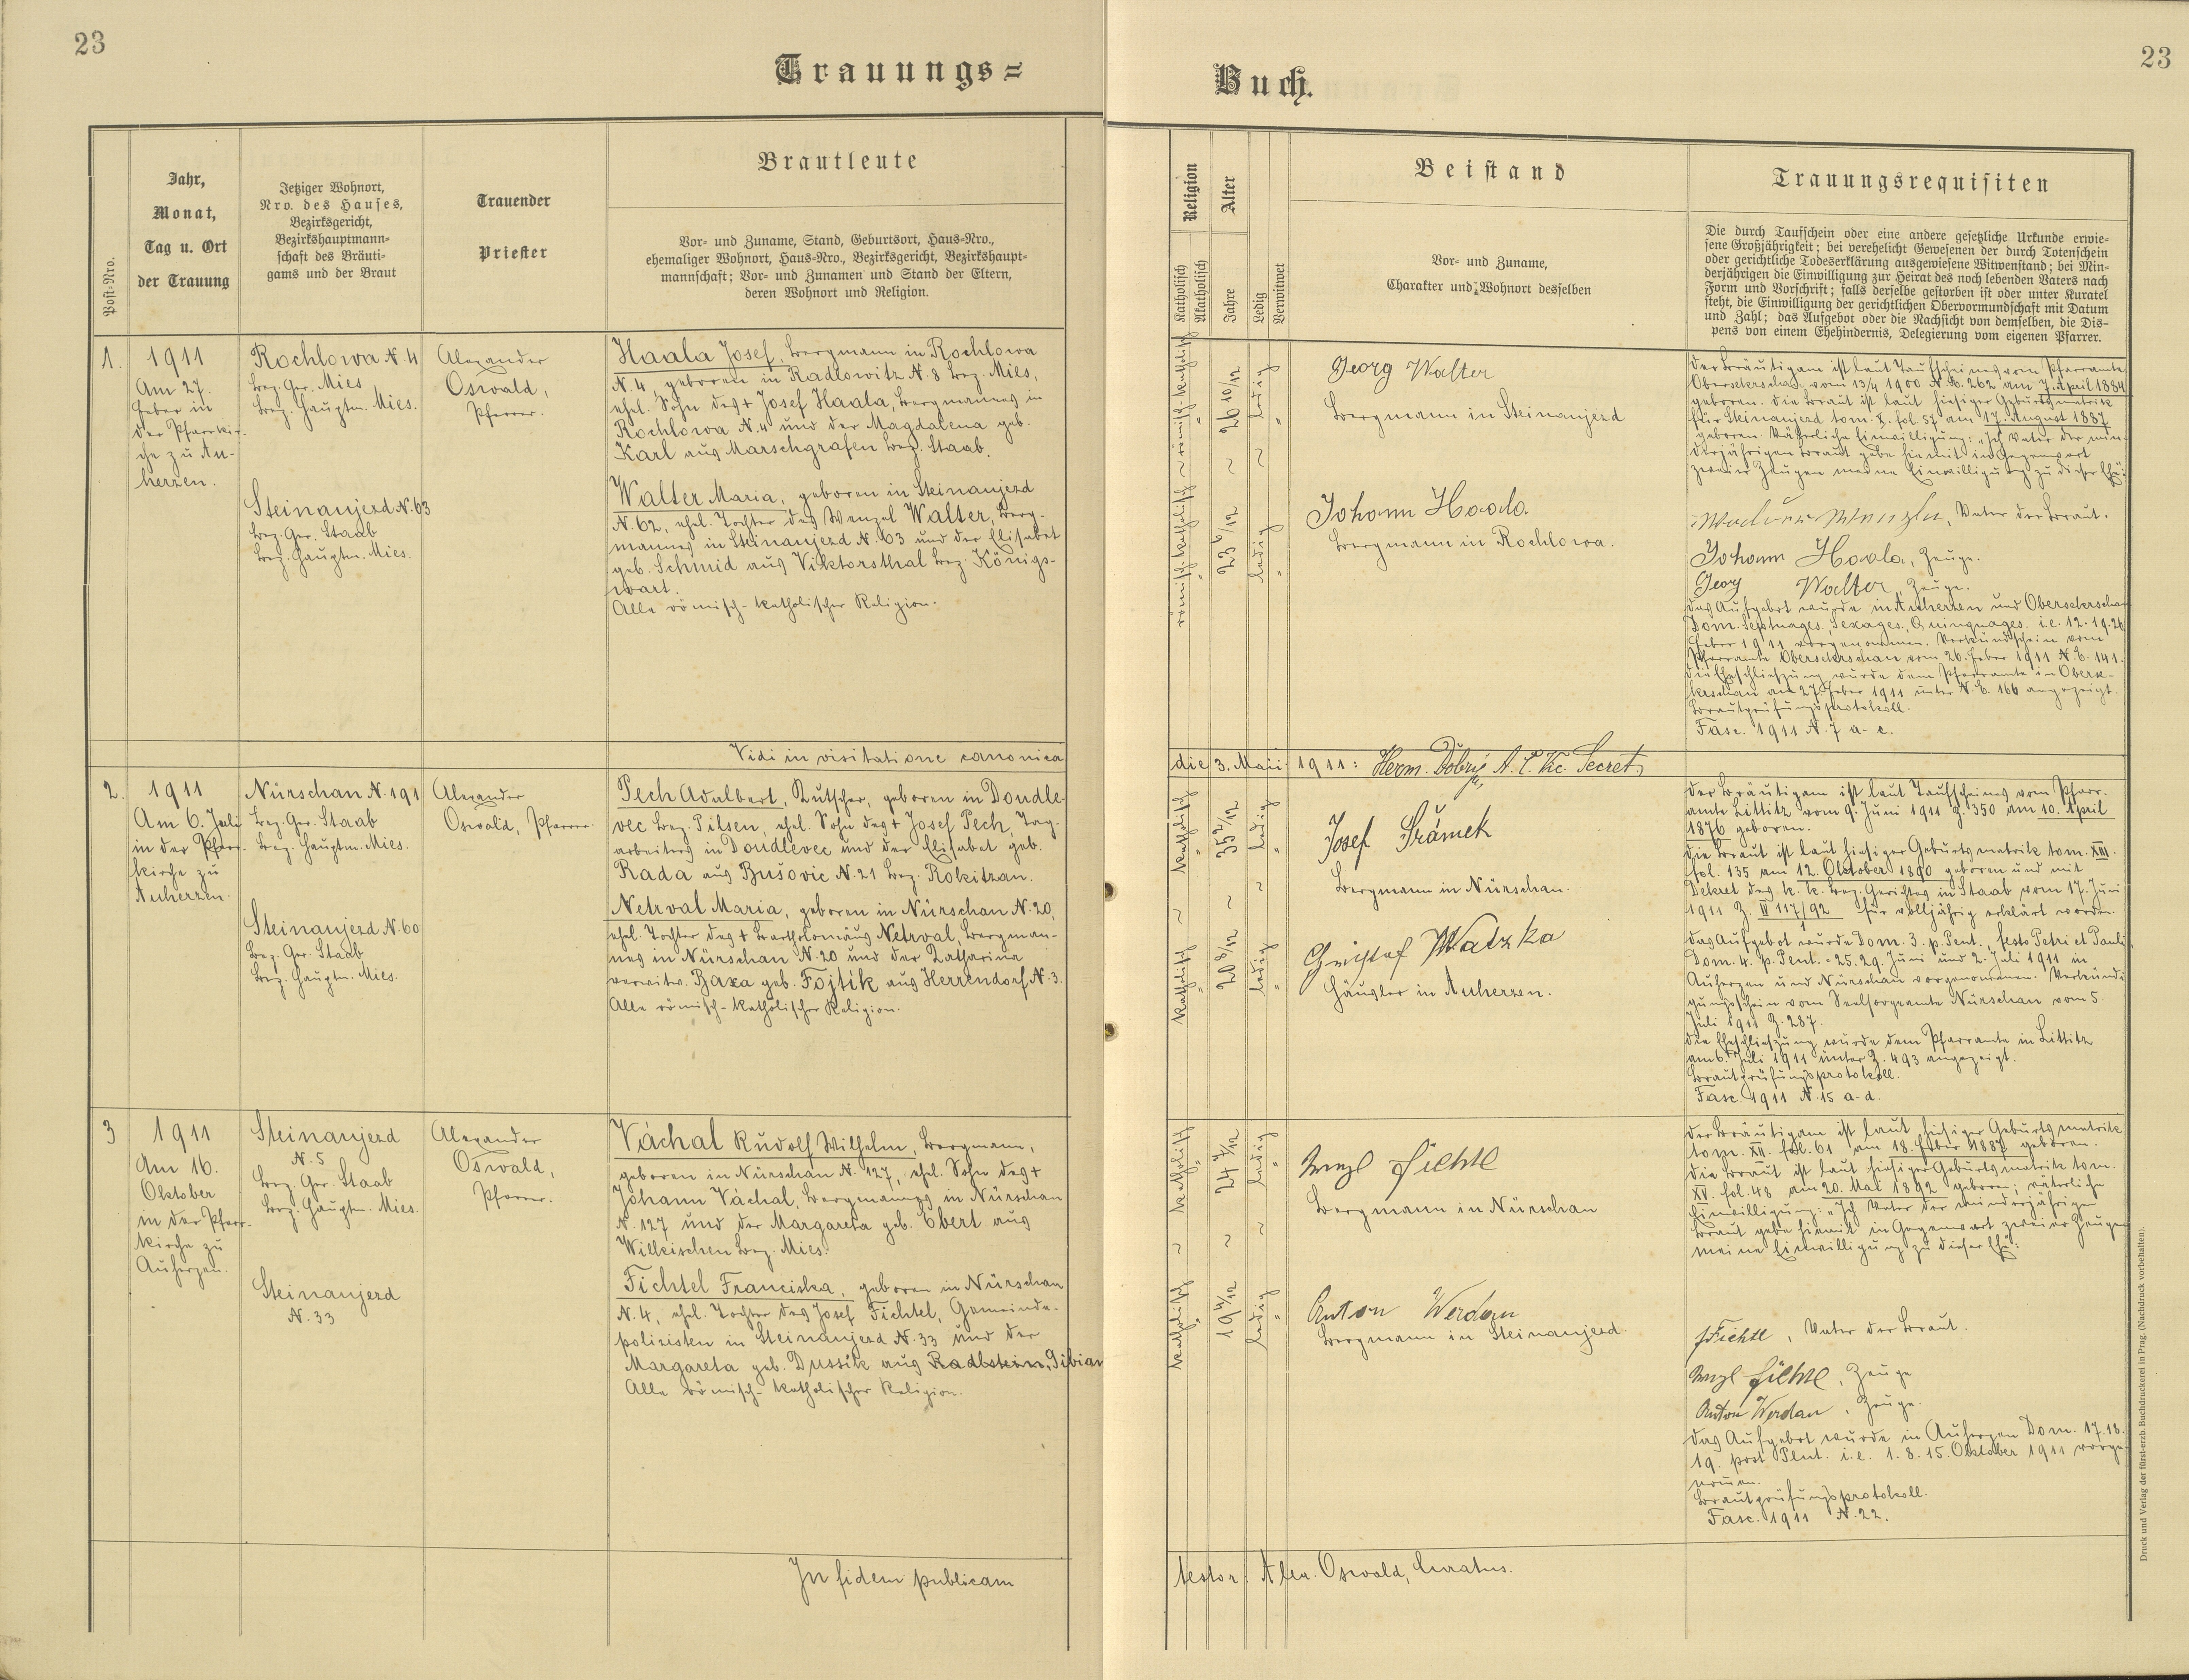 23
23
Trauungs=
Buch.
Post-Nro.
Jahr,
Monat,
Tag u. Ort
der Trauung
Jetziger Wohnort,
Nro. des Hauses,
Bezirksgericht,
Bezirkshauptmann-
schaft des Bräuti-
gams und der Braut
Trauender
Priester
Brautleute
Vor- und Zuname, Stand, Geburtsort, Haus-Nro.,
ehemaliger Wohnort, Haus-Nro., Bezirksgericht, Bezirkshaupt-
mannschaft; Vor- und Zunamen und Stand der Eltern,
deren Wohnort und Religion.
Religion
Katholisch
Akatholisch
Alter
Jahre
Ledig
Verwitwet
Beistand
Vor- und Zuname,
Charakter und Wohnort desselben
Trauungsrequisiten
Die durch Taufschein oder eine andere gesetzliche Urkunde erwie-
sene Großjährigkeit; bei verehelicht Gewesenen der durch Totenschein
oder gerichtliche Todeserklärung ausgewiesene Witwenstand; bei Min-
derjährigen die Einwilligung zur Heirat des noch lebenden Vaters nach
Form und Vorschrift; falls derselbe gestorben ist oder unter Kuratel
steht, die Einwilligung der gerichtlichen Obervormundschaft mit Datum
und Zahl; das Aufgebot oder die Nachsicht von demselben, die Dis-
pens von einem Ehehindernis, Delegierung vom eigenen Pfarrer.
1.
1911
Am 27.
Feber in
der Pfarrkir-
che zu Au-
herzen.
Rochlowa N. 4
Bez. Ger. Mies
Bez. Hauptm. Mies.
Steinaujezd N. 63
Bez. Ger. Staab
Bez. Hauptm. Mies.
Alexander
Oswald,
Pfarrer.
Haala Josef, Bergmann in Rochlowa
N. 4, geboren in Radlowitz N. 8 Bez. Mies,
ehel. Sohn des + Josef Haala, Bergmannes in
Rochlowa N. 4 und der Magdalena geb.
Karl aus Marschgrafen Bez. Staab.
Walter Maria, geboren in Steinaujezd
N. 62, ehel. Tochter des Wenzel Walter, Berg-
mannes in Steinaujezd N. 63 und der Elisabet
geb. Schmid aus Viktorsthal Bez. Königs-
wart.
Alle römisch-katholischer Religion.
römisch-katholisch ~ römisch-katholisch
23 6/12 ~ 26 10/12
ledig ~ ledig
Georg Walter
Bergmann in Steinaujezd
Johann Haala
Bergmann in Rochlowa.
Der Bräutigam ist laut Taufscheines vom Pfarramte
Obersekerschan vom 13/4 1900 N. E. 262 am 7. April 1884
geboren. Die Braut ist laut hiesiger Geburtsmatrik
für Steinaujezd tom. X. fol. 57 am 17. August 1887
geboren. Väterliche Einwilligung: „Ich Vater der min-
derjährigen Braut gebe hiemit in Gegenwart
zweier Zeugen meine Einwilligung zu dieser Ehe:
Vater der Braut.
Johann Haala, Zeuge.
Georg Walter, Zeuge.
Das Aufgebot wurde in Auherzen und Obersekerschan
Dom. Septuages., Sexages., Quinquages. i. e. 12. 19. 26.
Feber 1911 vorgenommen. Verkündschein vom
Pfarramte Obersekerschan vom 26. Feber 1911 N. E. 141.
Die Eheschließung wurde dem Pfarramte in Oberse-
kerschan am 27. Feber 1911 unter N. E. 166 angezeigt.
Brautprüfungsprotokoll.
Fasc. 1911 N. 7 a-e.
Vidi in visitatione canonica
die 3. Maii 1911: Herm. Dobrý Secret.
2.
1911
Am 6. Juli
in der Pfarr-
kirche zu
Auherzen.
Nürschan N. 191
Bez. Ger. Staab
Bez. Hauptm. Mies.
Steinaujezd N. 60
Bez. Ger. Staab
Bez. Hauptm. Mies.
Alexander
Oswald, Pfarrer.
Pech Adalbert, Kutscher, geboren in Doudle-
vec Bez. Pilsen, ehel. Sohn des + Josef Pech, Tag-
arbeiters in Doudlevec und der Elisabet geb.
Rada aus Bušovic N. 21 Bez. Rokitzan.
Netrval Maria, geboren in Nürschan N. 20,
ehel. Tochter des + Bartholomäus Netrval, Bergman-
nes in Nürschan N. 20 und der Katharina
verwitw. Baxa geb. Fojtík aus Herrendorf N. 3.
Alle römisch-katholischer Religion.
katholisch ~ katholisch
20 8/12 ~ 35 2/12
ledig ~ ledig
Josef Šrámek
Bergmann in Nürschan.
Christof Watzka
Häusler in Auherzen.
Der Bräutigam ist laut Taufscheines vom Pfarr-
amte Littitz vom 9. Juni 1911 Z. 350 am 10. April
1876 geboren.
Die Braut ist laut hiesiger Geburtsmatrik tom. XIII.
fol. 135 am 12. Oktober 1890 geboren und mit
Dekret des k. k. Bez. Gerichtes in Staab vom 17. Juni
1911 Z. für volljährig erklärt worden.
Das Aufgebot wurde Dom. 3. p. Pent., festo Petri et Pauli
Dom. 4. p. Pent. = 25. 29. Juni und 2. Juli 1911 in
Auherzen und Nürschan vorgenommen. Verkündi-
gungsschein vom Seelsorgeamte Nürschan vom 5.
Juli 1911 Z. 287.
Die Eheschließung wurde dem Pfarramte in Littitz
am 6. Juli 1911 unter Z. 493 angezeigt.
Brautprüfungsprotokoll.
Fasc. 1911 N. 15 a-d.
3
1911
Am 16.
Oktober
in der Pfarr-
kirche zu
Auherzen.
Steinaujezd
N. 5
Bez. Ger. Staab
Bez. Hauptm. Mies.
Steinaujezd
N. 33
Alexander
Oswald,
Pfarrer.
Váchal Rudolf Wilhelm, Bergmann,
geboren in Nürschan N. 127, ehel. Sohn des +
Johann Váchal, Bergmannes in Nürschan
N. 127 und der Margareta geb. Ebert aus
Wilkischen Bez. Mies.
Fichtel Franciska, geboren in Nürschan
N. 4, ehel. Tochter des Josef Fichtel, Gemeinde-
polizisten in Steinaujezd N. 33 und der
Margareta geb. Dussík aus Radlstein, Gibian
Alle römisch-katholischer Religion.
katholisch ~ katholisch
19 4/12 ~ 24
ledig ~ ledig
Wenzl Fichtl
Bergmann in Nürschan
Anton Werdan
Bergmann in Steinaujezd.
Der Bräutigam ist laut hiesiger Geburtsmatrik
tom. XII. fol. 61 am 18. Feber 1887 geboren.
Die Braut ist laut hiesiger Geburtsmatrik tom.
XV. fol. 48 am 20. Mai 1892 geboren; väterliche
Einwilligung: „Ich Vater der minderjährigen
Braut gebe hiemit in Gegenwart zweier Zeugen
meine Einwilligung zu dieser Ehe:
J Fichtl, Vater der Braut.
Wenzl Fichtl, Zeuge
Anton Werdan, Zeuge.
Das Aufgebot wurde in Auherzen Dom. 17. 18.
19. post Pent. i. e. 1. 8. 15. Oktober 1911 vorge-
nommen.
Brautprüfungsprotokoll.
Fasc. 1911 N. 22.
In fidem publicam
testor: Alex. Oswald, Curatus.
Druck und Verlag der fürst-erzb. Buchdruckerei in Prag. (Nachdruck vorbehalten).